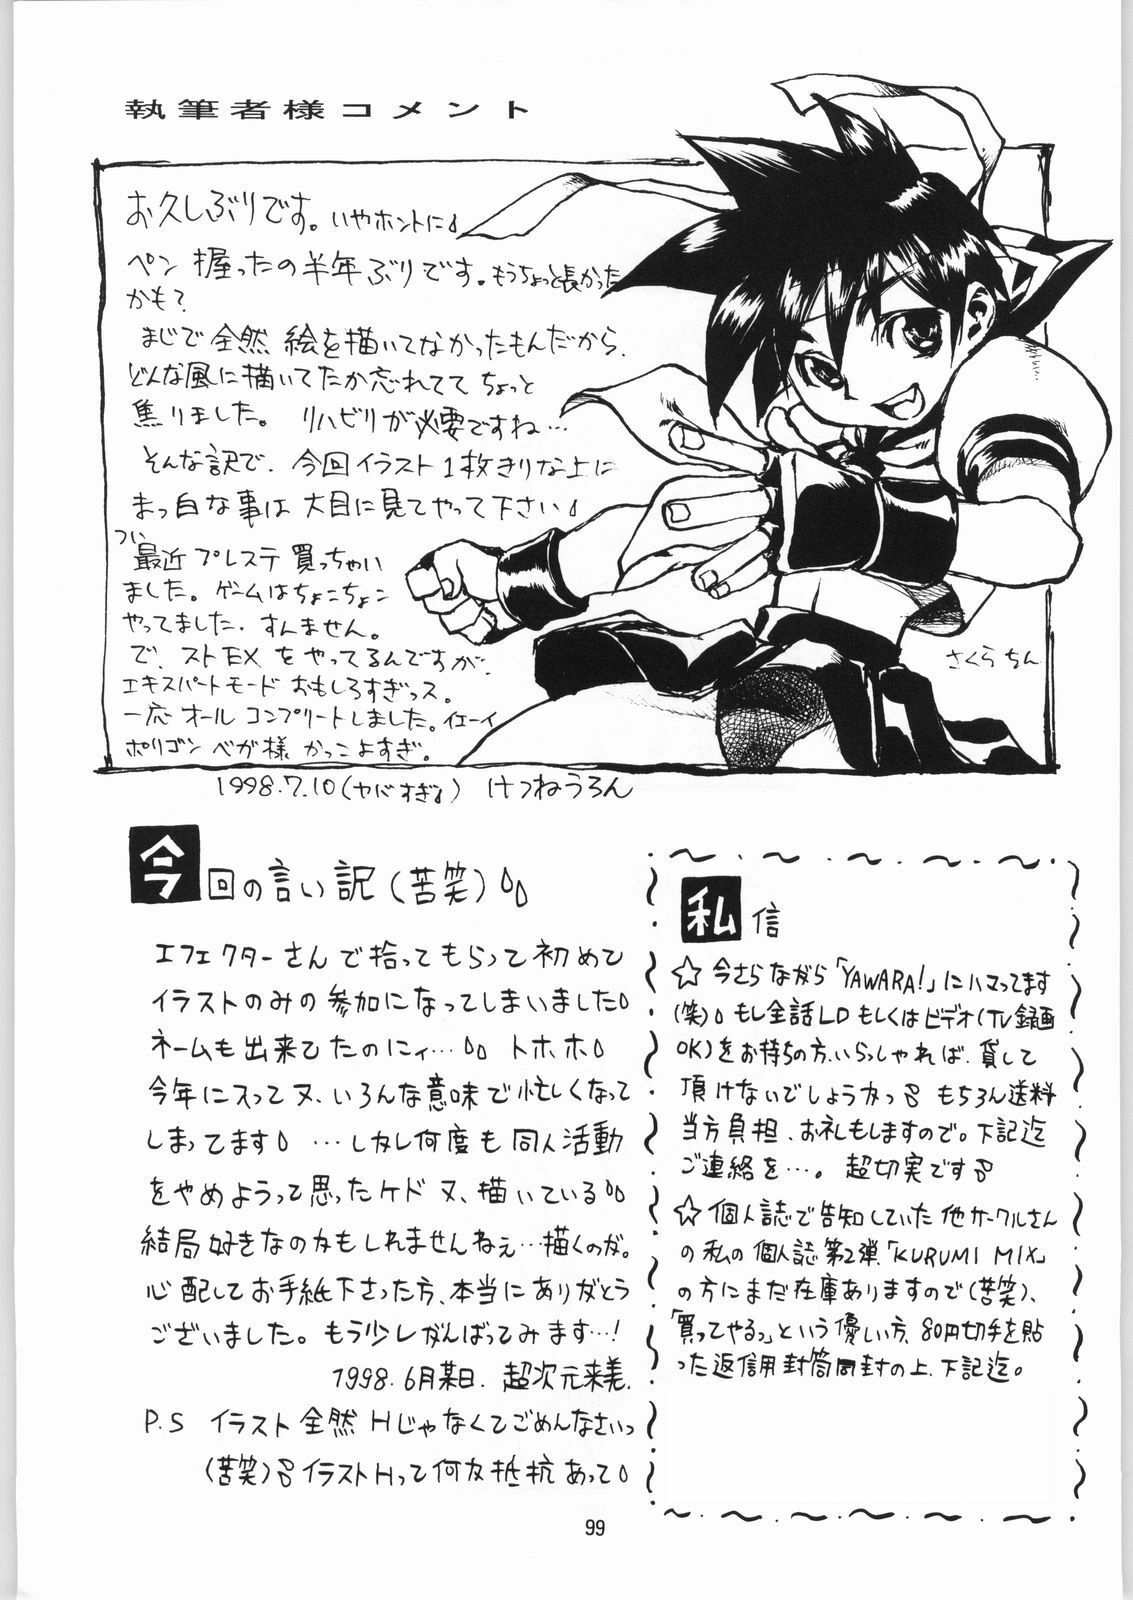 執筆者様コメント
お久しぶりです。いやホントに
ペン握ったの半年ぶりです。もうちょっと長かった
かも?
まじで全然絵を描いてなかったもんだから、
どんな風に描いてたか忘れてて ちょっと
焦りました。リハビリが必要ですね…
そんな訳で、今回イラスト1枚きりな上に
まっ白な事は大目に見てやって下さい
つい
最近プレステ買っちゃい
ました。ゲームはちょこちょこ
やってました、すんません。
で、ストEXをやってるんですが、
エキスパートモードおもしろすぎっス。
一応オールコンプリートしました。イエーイ
ポリゴンベガ様かっこよすぎ。
さくらちん
1998.7.10(ヤバすぎ) けつねうろん
今回の言い訳(苦笑)
エフェクターさんで拾ってもらって初めて
イラストのみの参加になってしまいました
ネームも出来てたのにィ… トホホ
今年に入って又、いろんな意味で忙しくなって
しまってます …しかし何度も同人活動
をやめようって思ったケド又、描いている
結局好きなのかもしれませんねぇ…描くのが。
心配してお手紙下さった方、本当にありがとう
ございました。もう少しがんばってみます…!
1998.6月某日. 超次元来美
P.S イラスト全然Hじゃなくてごめんなさいっ
(苦笑) イラストHって何か抵抗あって
私信
☆今さらながら「YAWARA!」にハマってます
(笑) もし全話LDもしくはビデオ(TV録画
OK)をお持ちの方、いらっしゃれば、貸して
頂けないでしょうかっ もちろん送料
当方負担、お礼もしますので。下記迄
ご連絡を…。超切実です
☆個人誌で告知していた他サークルさん
の私の個人誌第2弾、「KURUMI MIX」
の方にまだ在庫ありますので(苦笑)、
「買ってやるっ」という優しい方、80円切手を貼
った返信用封筒同封の上、下記迄。
99